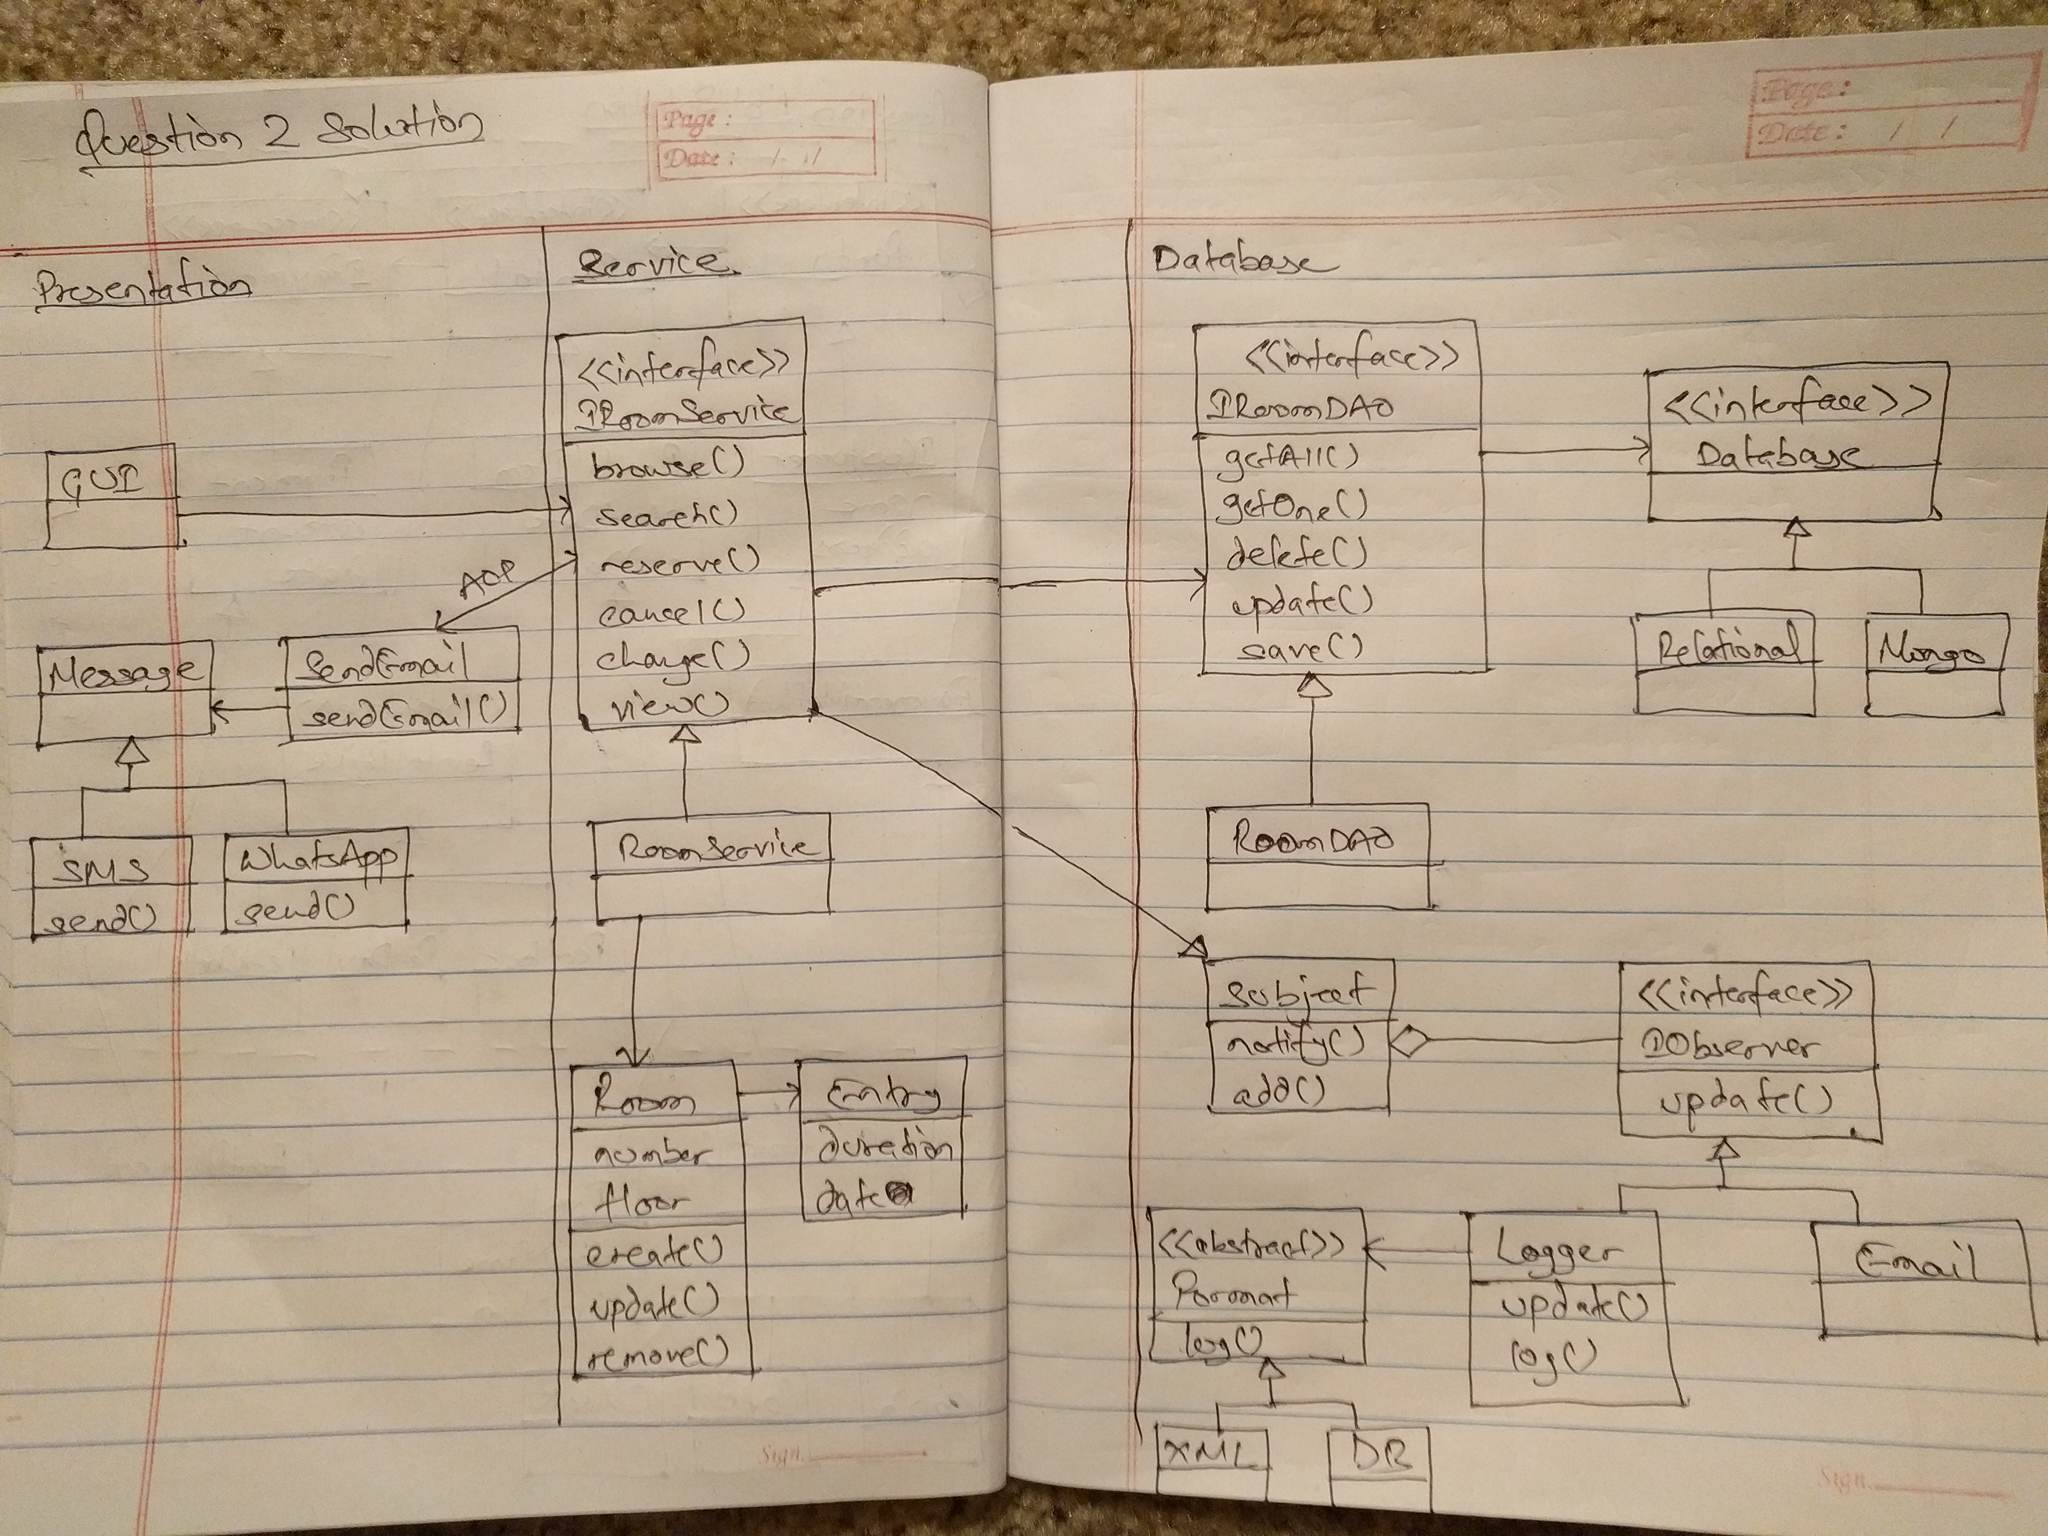 Question 2 Solution
Page:
Date: / /
Page:
Date: / /
Presentation
Service
Database
GUI
AOP
Message
SendEmail
sendEmail()
SMS
send()
WhatsApp
send()
<<interface>>
IRoomService
browse()
search()
reserve()
cancel()
change()
view()
RoomService
Room
number
floor
create()
update()
remove()
Entry
duration
date
<<interface>>
IRoomDAO
getAll()
getOne()
delete()
update()
save()
RoomDAO
<<interface>>
Database
Relational
Mongo
Subject
notify()
add()
<<interface>>
IObserver
update()
<<abstract>>
Format
log()
Logger
update()
log()
Email
XML
DB
Sign.
Sign.